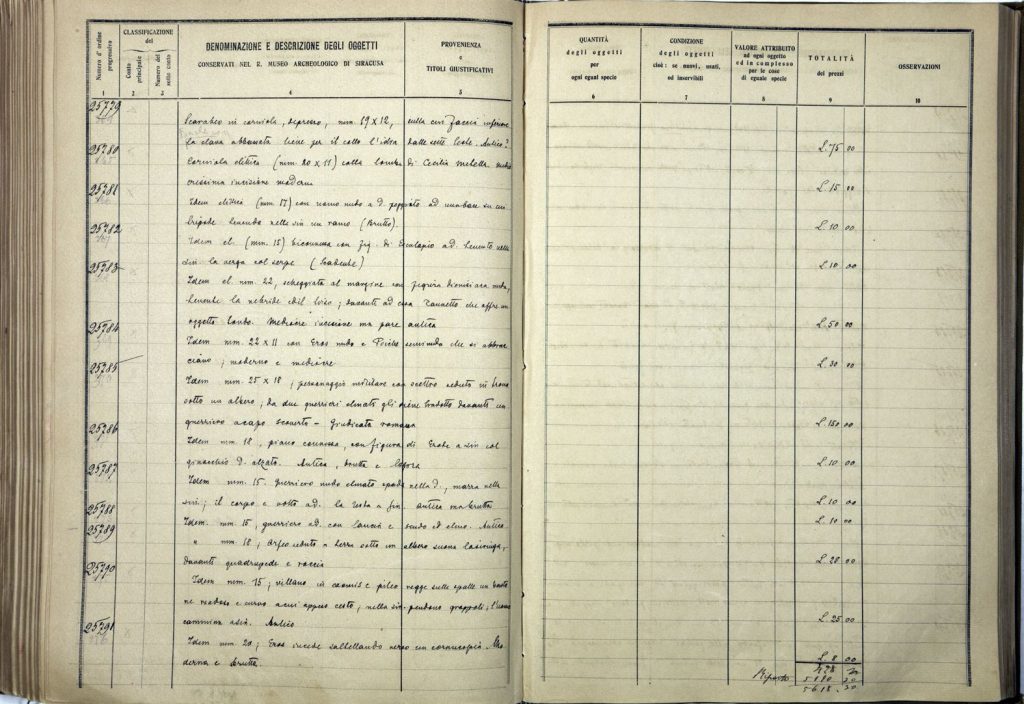 Numero d'ordine progressivo
CLASSIFICAZIONE
del
Conto principale
Numero del sotto conto
DENOMINAZIONE E DESCRIZIONE DEGLI OGGETTI
CONSERVATI NEL R. MUSEO ARCHEOLOGICO DI SIRACUSA
PROVENIENZA
e
TITOLI GIUSTIFICATIVI
1 2 3 4 5
25779
Scarabeo in corniola, depresso, mm. 19 x 12, sulla cui faccia inferiore
la clava abbassata tiene per il collo l'idra dalle sette teste. Antico?
25780
Corniola elittica (mm. 20 x 11) colla tomba di Cecilia Metella medio
crissima incisione moderna
25781
Idem elittica (mm. 17) con uomo nudo a d. poggiato ad una base su cui
tripode tenendo nella sin un ramo (Brutto).
25782
Idem el. (mm. 15) biconvessa con fig. di Esculapio a d. tenente nella
sin. la verga col serpe
25783
Idem el. mm. 22, scheggiata al margine con figura dionisiaca nuda,
tenente la nebride ed il tirso; davanti ad essa che offre un
oggetto tondo. Mediocre incisione ma pare antica
25784
Idem mm. 22 x 11 con Eros nudo e Psiche seminuda che si abbrac
ciano; moderno e mediocre
25785
Idem mm. 25 x 18; personaggio militare con scettro seduto in trono
sotto un albero, da due guerrieri elmati gli viene condotto davanti un
guerriero a capo scoverto - Giudicata romana
25786
Idem mm. 18, piano convessa, con figura di a sin col
ginocchio d. alzato. Antica, brutta e
25787
Idem mm. 15. Guerriero nudo elmato spada nella d., nella
sin.; il corpo è volto a d. la testa a sin. antica ma brutta
25788
Idem mm. 15, guerriero a d. con lancia e scudo ed elmo. Antico
25789
" mm. 18; Orfeo seduto a terra sotto un albero suona la siringa,
davanti quadrupede e roccia
25790
Idem mm. 15; villano in exomis e pileo regge sulle spalle un basto
ne nodoso e curvo a cui appeso cesto; nella sin. pendono grappoli; l'uomo
cammina a sin. Antico
25791
Idem mm. 20; Eros incede saltellando verso un cornucopia. Mo
derna e brutta.
QUANTITÀ
degli oggetti
per
ogni egual specie
CONDIZIONE
degli oggetti
cioè: se nuovi, usati,
od inservibili
VALORE ATTRIBUITO
ad ogni oggetto
ed in complesso
per le cose
di eguale specie
TOTALITÀ
dei prezzi
OSSERVAZIONI
6 7 8 9 10
L. 75 00
L. 15 00
L. 10 00
L. 10 00
L. 50 00
L. 30 00
L. 150 00
L. 10 00
L. 10 00
L. 10 00
L. 20 00
L. 25 00
L. 8 00
Riporto
5618.20